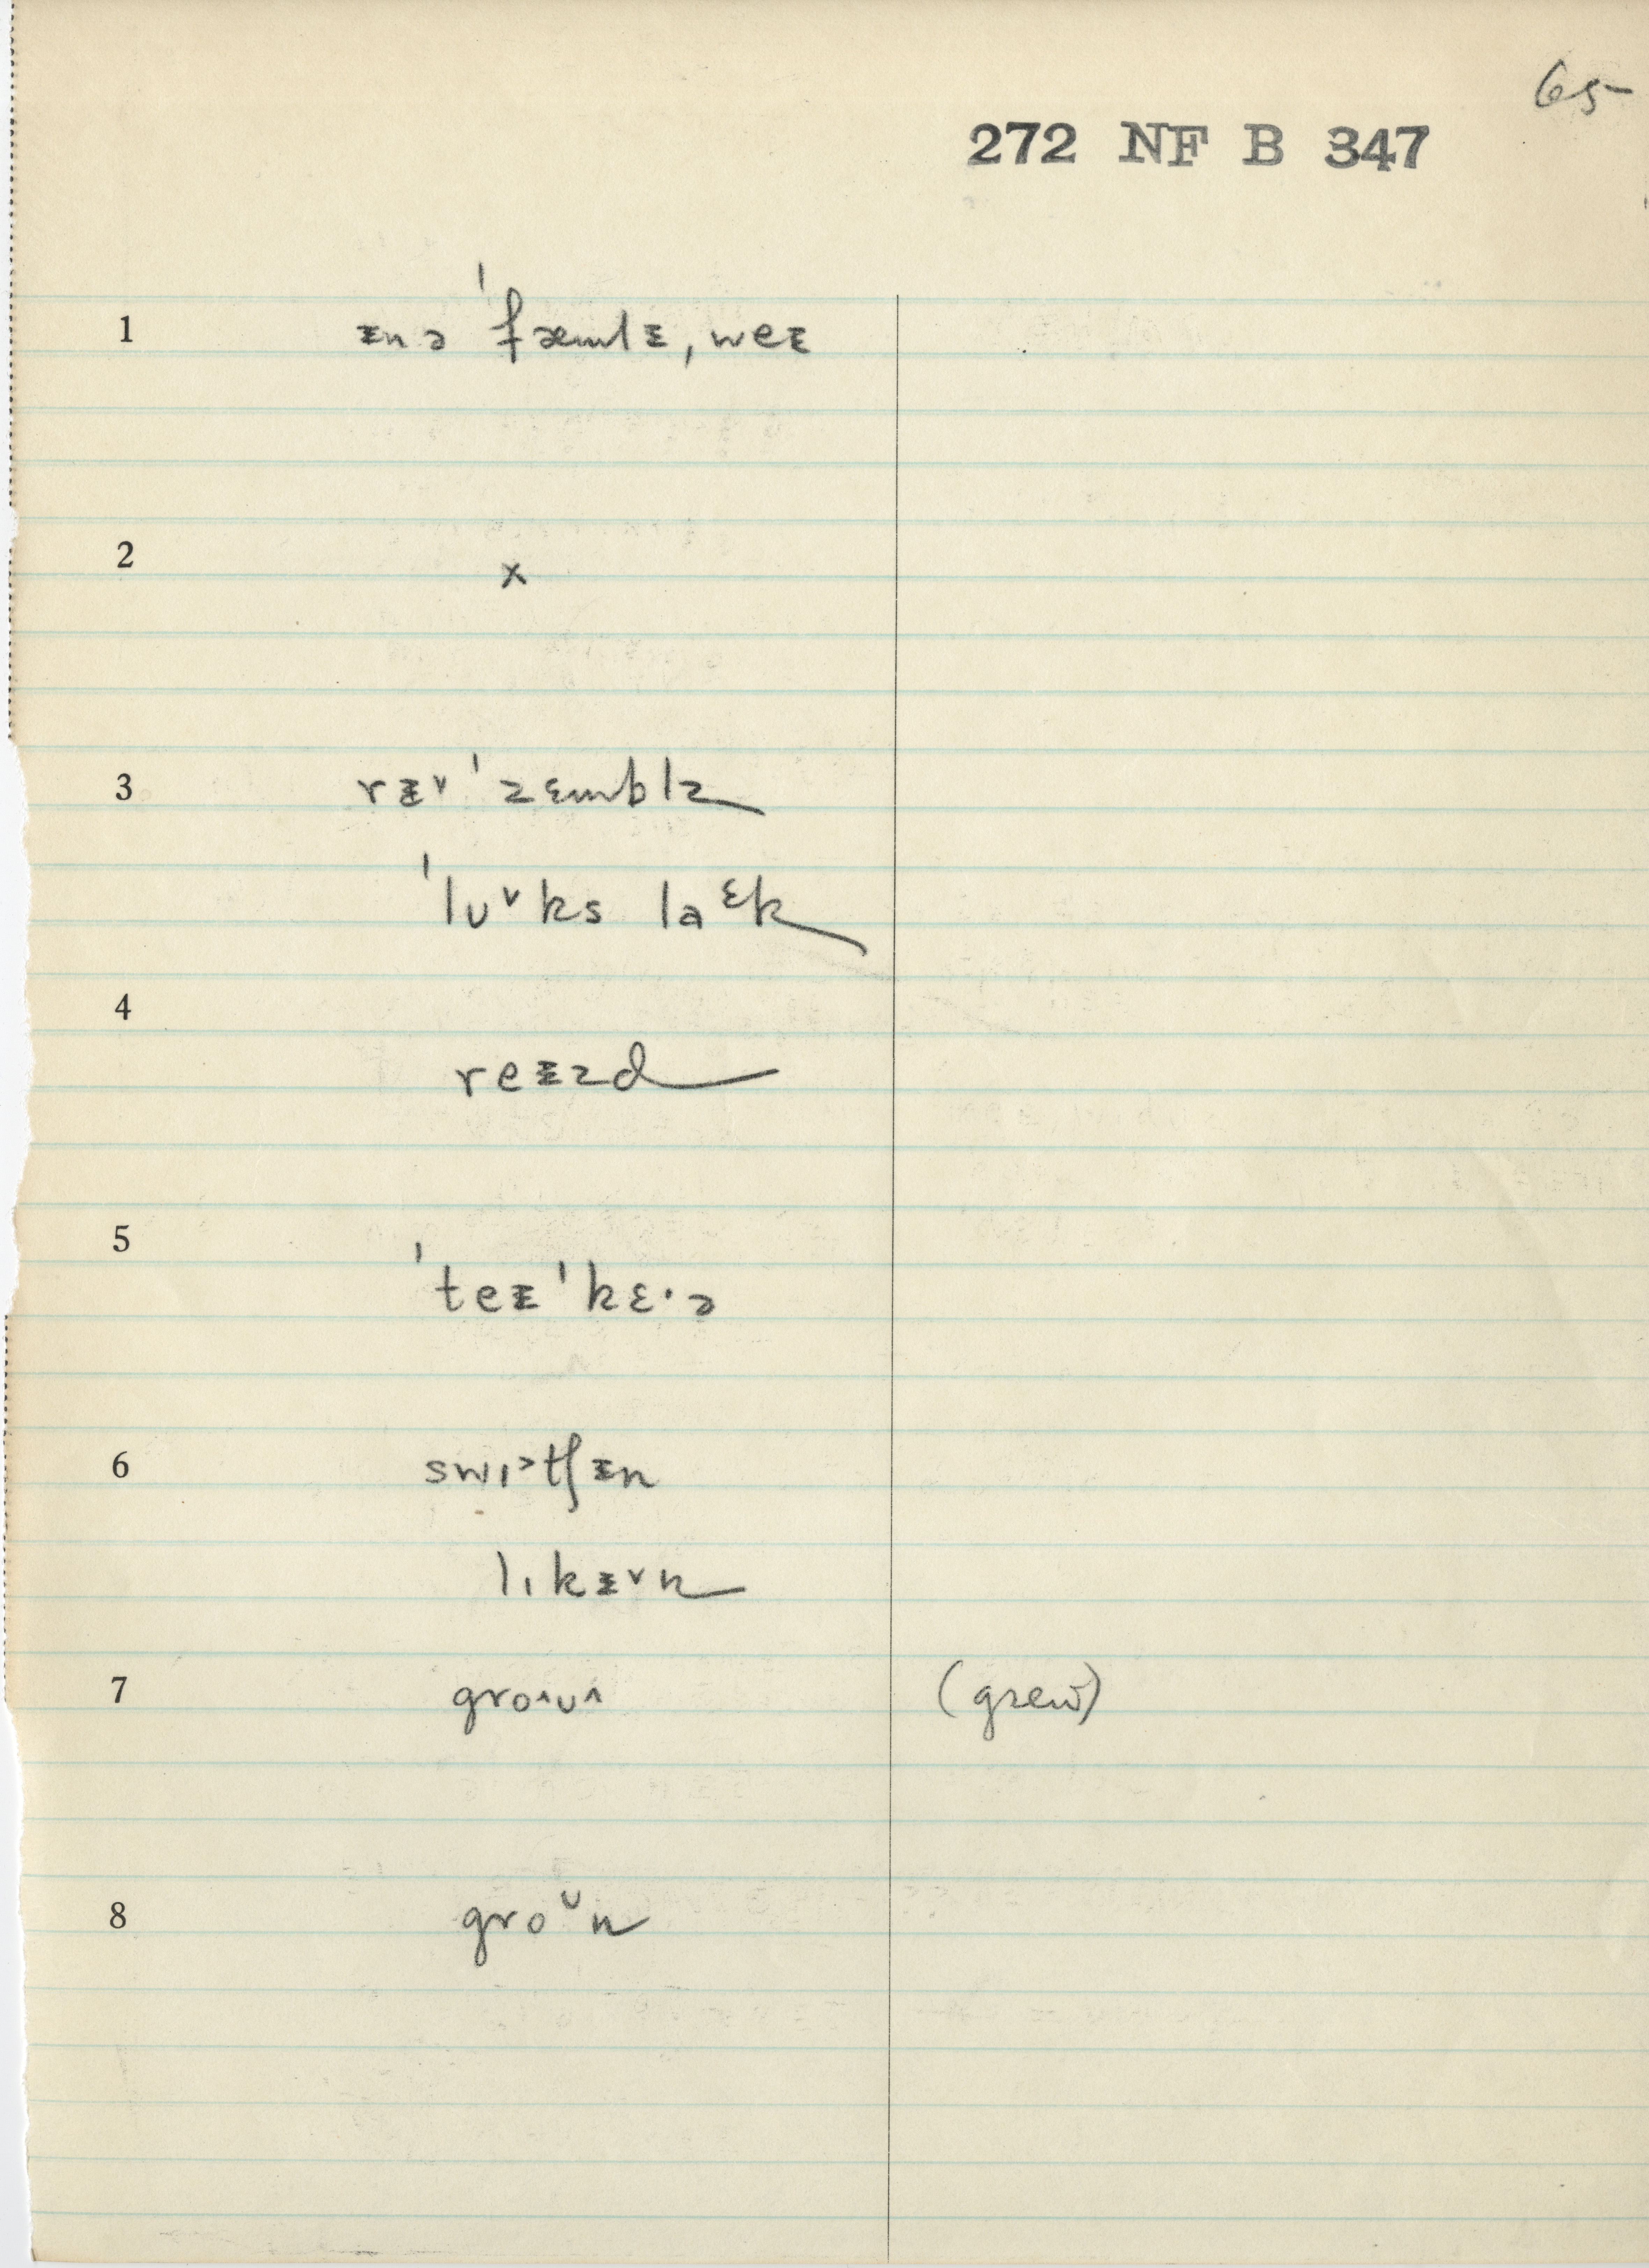 65
272 NF B 347
1 ᵻn ə ˈfæmlᵻ, weᵻ
2 x
3 rᵻ˅ ˈzɛmblz
ˈlʊ˅ks laᵋk
4 reᵻzd
5 ˈteᵻ ˈkɛ·ə
6 swɪ˃tʃᵻn
lɪkᵻ˅n
7 gro˄ʊ˄ (grew)
8 groᶷn